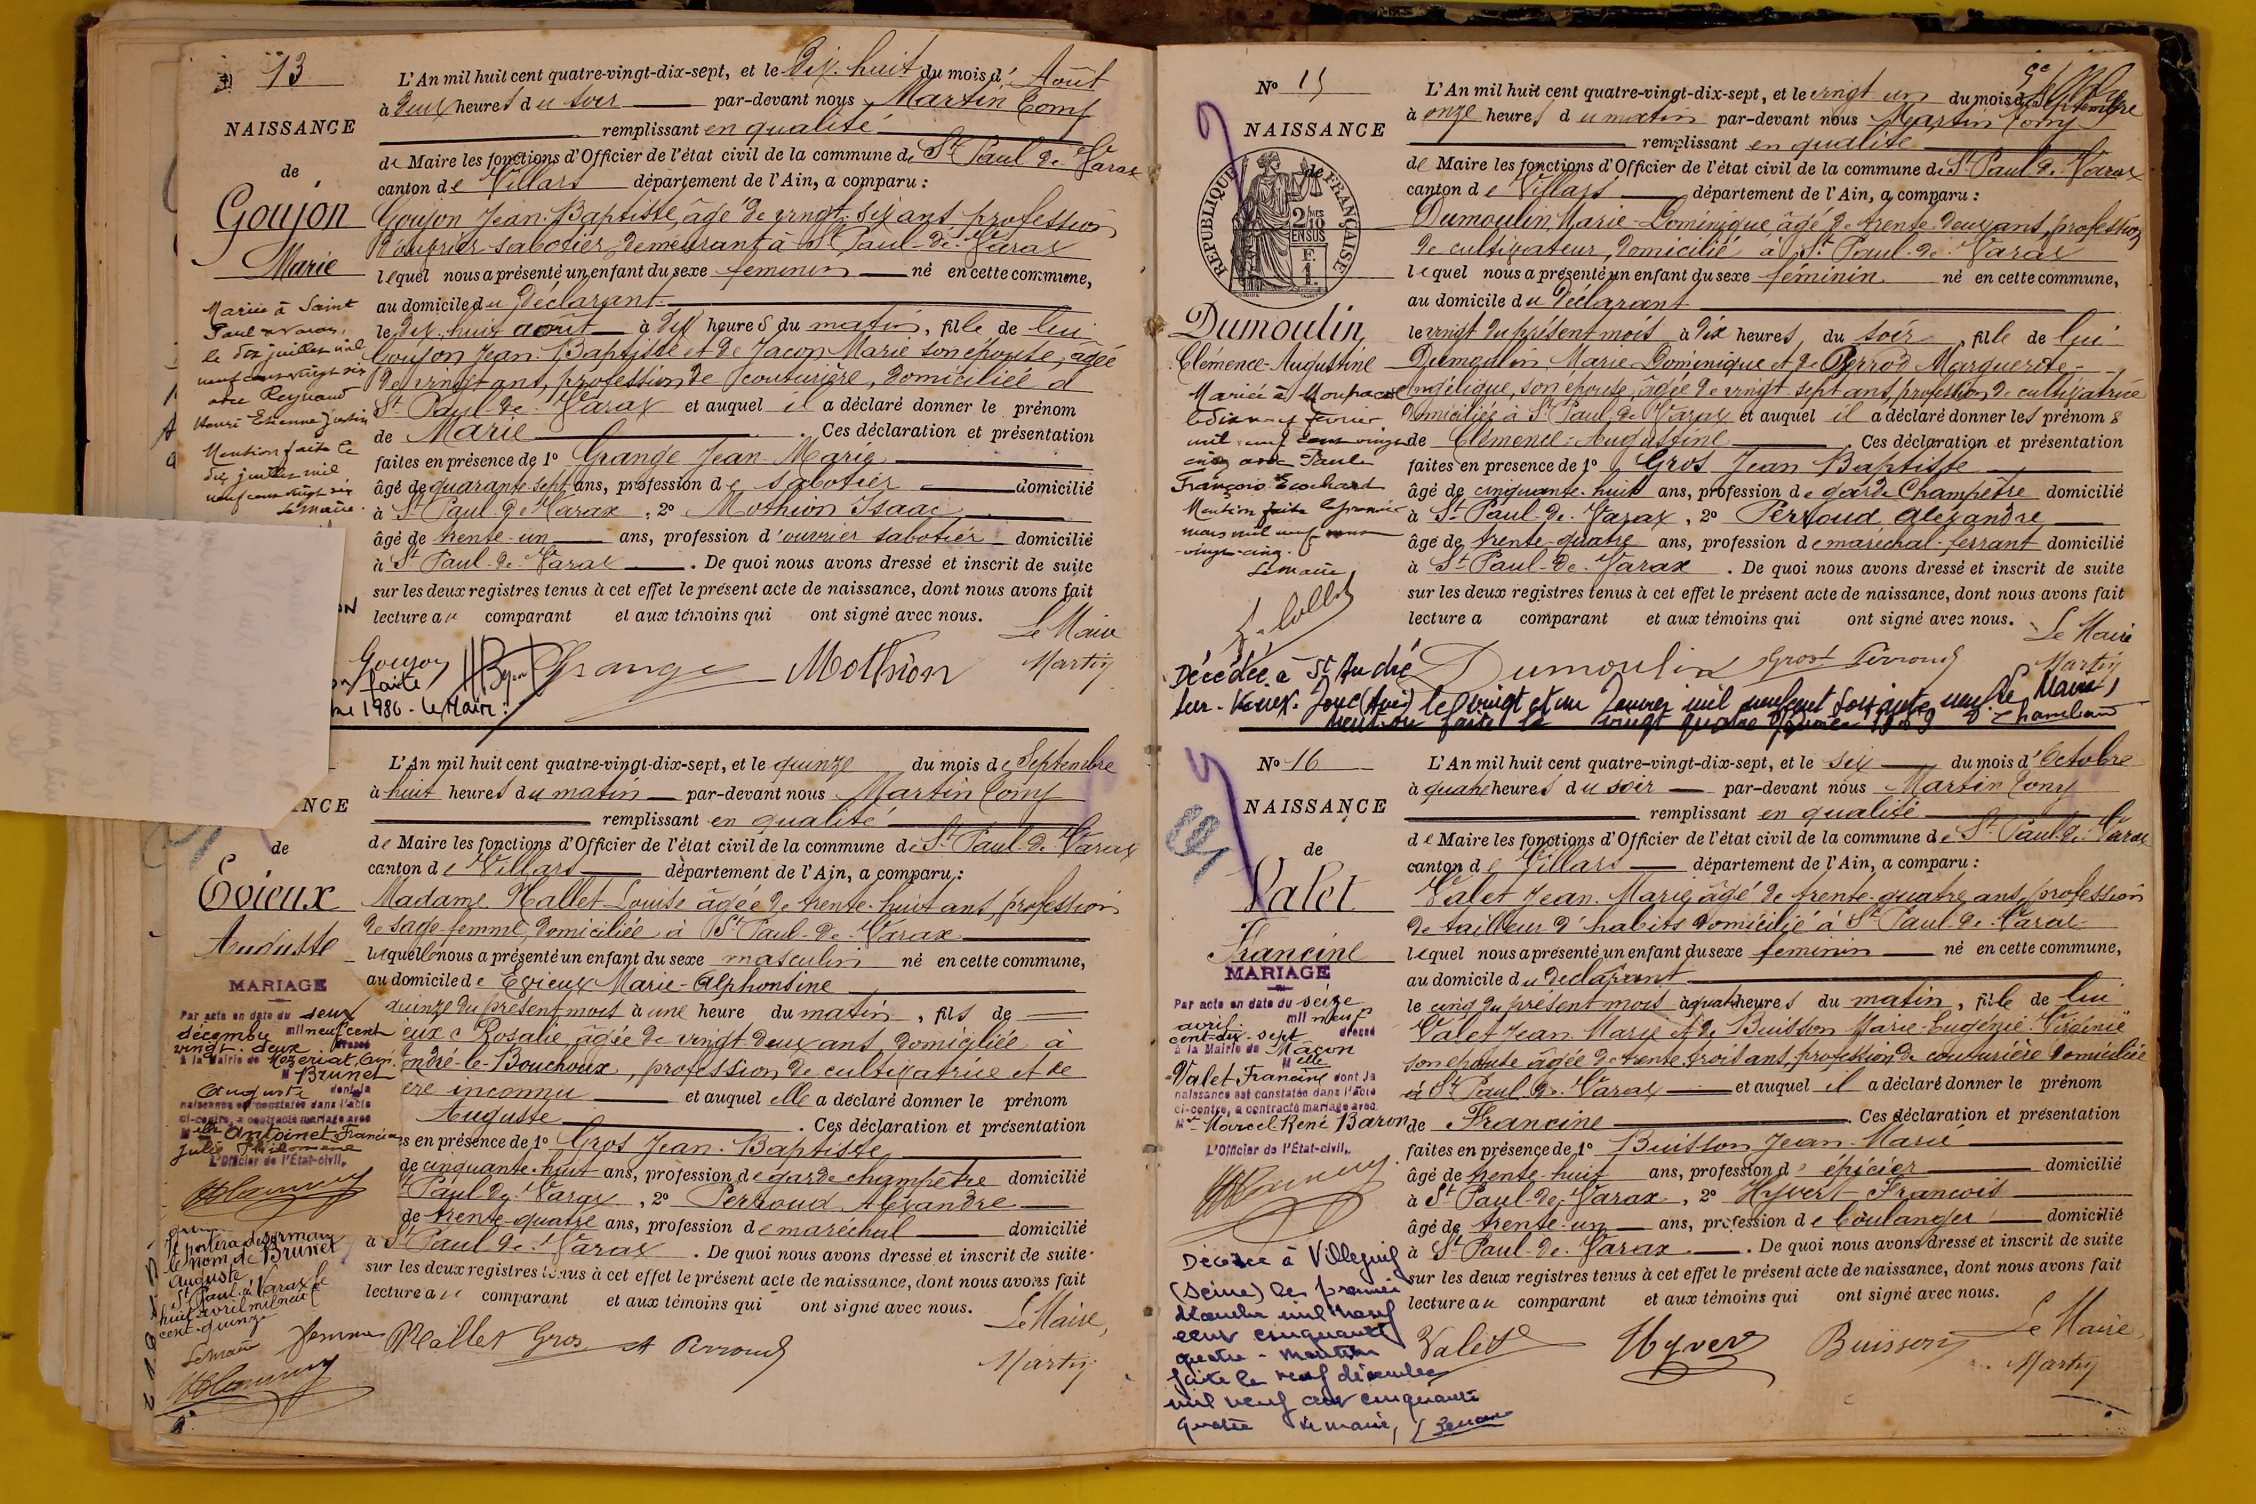 13
NAISSANCE
de
Goujon
Marie
L'An mil huit cent quatre-vingt-dix-sept, et le Dix-huit du mois d' Août
à Deux heures du soir par-devant nous Martin Tony
remplissant en qualité
de Maire les fonctions d'Officier de l'état civil de la commune de St Paul de Varax
canton de Villars département de l'Ain, a comparu :
Goujon Jean-Baptiste, âgé de vingt-six ans, profession
d'ouvrier-sabotier, demeurant à St Paul-de-Varax
lequel nous a présenté un enfant du sexe féminin né en cette commune,
au domicile du Déclarant
le dix-huit août à dix heures du matin, fille de lui
Goujon Jean-Baptiste et de Jacon Marie son épouse, âgée
de vingt ans, profession de couturière, domiciliée à
St Paul-de-Varax et auquel il a déclaré donner le prénom
de Marie . Ces déclaration et présentation
faites en présence de 1° Grange Jean-Marie
âgé de quarante-sept ans, profession de sabotier domicilié
à St Paul-de-Varax , 2° Mothion Isaac
âgé de trente-un ans, profession d'ouvrier sabotier domicilié
à St Paul-de-Varax . De quoi nous avons dressé et inscrit de suite
sur les deux registres tenus à cet effet le présent acte de naissance, dont nous avons fait
lecture au comparant et aux témoins qui ont signé avec nous.
Le Maire
Goujon Grange Mothion Martin
Mariée à Saint
Paul de Varax,
le dix juillet mil
neuf cent vingt six
avec Reynaud
Henri Etienne Justin
Mention faite le
dix juillet mil
neuf cent vingt six
Le maire.
faite
1986 - Le Maire :
NCE
de
Evieux
Auguste
L'An mil huit cent quatre-vingt-dix-sept, et le quinze du mois de Septembre
à huit heures du matin par-devant nous Martin Tony
remplissant en qualité
de Maire les fonctions d'Officier de l'état civil de la commune de St Paul-de-Varax
canton de Villars département de l'Ain, a comparu :
Madame Mallet Louise âgée de trente-huit ans, profession
de sage-femme, domiciliée à St Paul-de-Varax
lequelle nous a présenté un enfant du sexe masculin né en cette commune,
au domicile de Evieux Marie-Alphonsine
quinze du présent mois à une heure du matin, fils de
eux Rosalie, âgée de vingt-deux ans, domiciliée à
André-le-Bouchoux, profession de cultivatrice et de
ère inconnu et auquel elle a déclaré donner le prénom
Auguste . Ces déclaration et présentation
s en présence de 1° Gros Jean-Baptiste
de cinquante-huit ans, profession de garde champêtre domicilié
St Paul-de-Varax , 2° Perroud Alexandre
de trente-quatre ans, profession de maréchal domicilié
à St Paul-de-Varax . De quoi nous avons dressé et inscrit de suite
sur les deux registres tenus à cet effet le présent acte de naissance, dont nous avons fait
lecture au comparant et aux témoins qui ont signé avec nous.
Le Maire,
femme Mallet Gros A Perroud Martin
MARIAGE
Par acte en date du deux
décembre mil neuf cent
vingt-deux dressé
à la Mairie de Mézériat, Ain
M Brunet
Auguste dont la
naissance est constatée dans l'acte
ci-contre, a contracté mariage avec
Melle Antoinet Francia
Julie Philomène
L'Officier de l'Etat-civil,
portera désormais
le nom de Brunet
Auguste
St Paul de Varax le
huit avril mil neuf
cent quinze
Le maire
No 15
NAISSANCE
de
REPUBLIQUE FRANÇAISE
2/10
EN SUS
Dumoulin
Clémence-Augustine
L'An mil huit cent quatre-vingt-dix-sept, et le vingt un du mois de Septembre
à onze heures du matin par-devant nous Martin Tony
remplissant en qualité
de Maire les fonctions d'Officier de l'état civil de la commune de St Paul-de-Varax
canton de Villars département de l'Ain, a comparu :
Dumoulin, Marie-Dominique, âgé de trente-deux ans, profession
de cultivateur, domicilié à St Paul-de-Varax
lequel nous a présenté un enfant du sexe féminin né en cette commune,
au domicile du déclarant
le vingt du présent mois à dix heures du soir, fille de lui
Dumoulin Marie-Dominique et de Perrod Marguerite-
Angélique, son épouse, âgée de vingt-sept ans, profession de cultivatrice
domiciliée à St Paul-de-Varax et auquel il a déclaré donner les prénoms
de Clémence-Augustine . Ces déclaration et présentation
faites en présence de 1° Gros Jean Baptiste
âgé de cinquante-huit ans, profession de garde Champêtre domicilié
à St Paul-de-Varax , 2° Perroud Alexandre
âgé de trente-quatre ans, profession de maréchal-ferrant domicilié
à St Paul-de-Varax . De quoi nous avons dressé et inscrit de suite
sur les deux registres tenus à cet effet le présent acte de naissance, dont nous avons fait
lecture a comparant et aux témoins qui ont signé avec nous.
Le Maire
Dumoulin Gros Perroud Martin
Mariée à
février
mil neuf cent vingt
cinq avec Paul
François Ecochard
Mention faite le premier
mars mil neuf cent
vingt-cinq.
Le maire,
Décédée à St André
sur-Vieux-Jonc (Ain) le vingt et un Janvier mil neuf cent soixante neuf. Le Maire,
mention faite le vingt quatre Janvier 1969
No 16
NAISSANCE
de
Valet
Francine
L'An mil huit cent quatre-vingt-dix-sept, et le six du mois d'Octobre
à quatre heures du soir par-devant nous Martin Tony
remplissant en qualité
de Maire les fonctions d'Officier de l'état civil de la commune de St Paul-de-Varax
canton de Villars département de l'Ain, a comparu :
Valet Jean-Marie, âgé de trente-quatre ans, profession
de tailleur d'habits domicilié à St Paul-de-Varax
lequel nous a présenté un enfant du sexe féminin né en cette commune,
au domicile du déclarant
le cinq du présent mois à quatre heures du matin, fille de lui
Valet Jean-Marie et de Buisson Marie-Eugénie-Virginie
son épouse âgée de trente-trois ans, profession de couturière domiciliée
à St Paul-de-Varax et auquel il a déclaré donner le prénom
de Francine . Ces déclaration et présentation
faites en présence de 1° Buisson Jean-Marie
âgé de trente-huit ans, profession d'épicier domicilié
à St Paul-de-Varax , 2° Hyvert François
âgé de trente-un ans, profession de boulanger domicilié
à St Paul-de-Varax . De quoi nous avons dressé et inscrit de suite
sur les deux registres tenus à cet effet le présent acte de naissance, dont nous avons fait
lecture au comparant et aux témoins qui ont signé avec nous.
Le Maire,
Valet Hyvert Buisson Martin
MARIAGE
Par acte en date du seize
avril mil neuf
cent-dix-sept dressé
à la Mairie de Mâcon
Melle
Valet Francine dont la
naissance est constatée dans l'acte
ci-contre, a contracté mariage avec
Mr Marcel René Baron
L'Officier de l'Etat-civil,
Décédée à Villejuif
(Seine) le premier
décembre mil neuf
cent cinquante
quatre - mention
faite le neuf décembre
mil neuf cent cinquante
quatre Le maire,